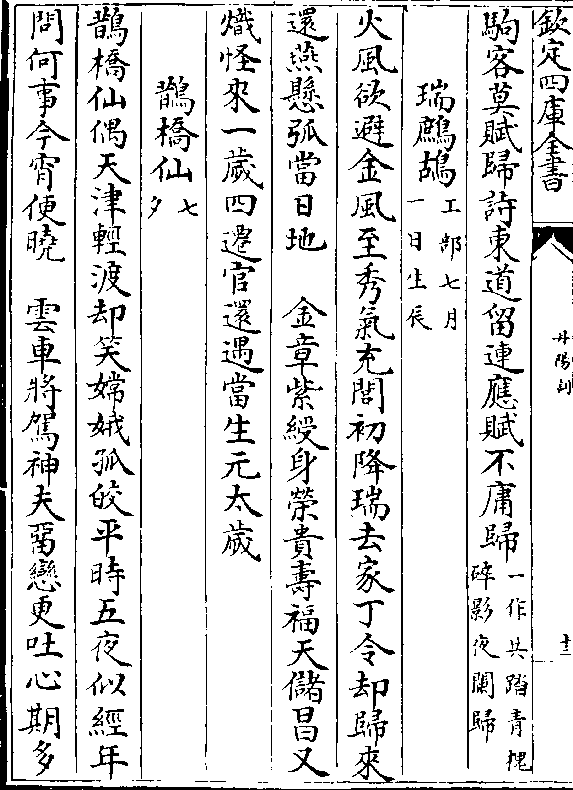 欽定四庫全書
丹陽詞
十三
駒客莫賦歸許東道留連應賦不庸歸一作共踏青槐碎影夜闌歸
瑞鷓鴣工部七月一日生辰
火風欲避金風至秀氣充閭初降瑞去家丁令却歸來
還燕懸弧當日地　金章紫綬身榮貴壽福天儲昌又
熾怪來一歲四遷官還遇當生元太歲
鵲橋仙七夕
鵲橋仙偶天津輕渡却笑嫦娥孤皎平時五夜似經年
問何事今宵便曉　雲車將駕神夫留戀更吐心期多